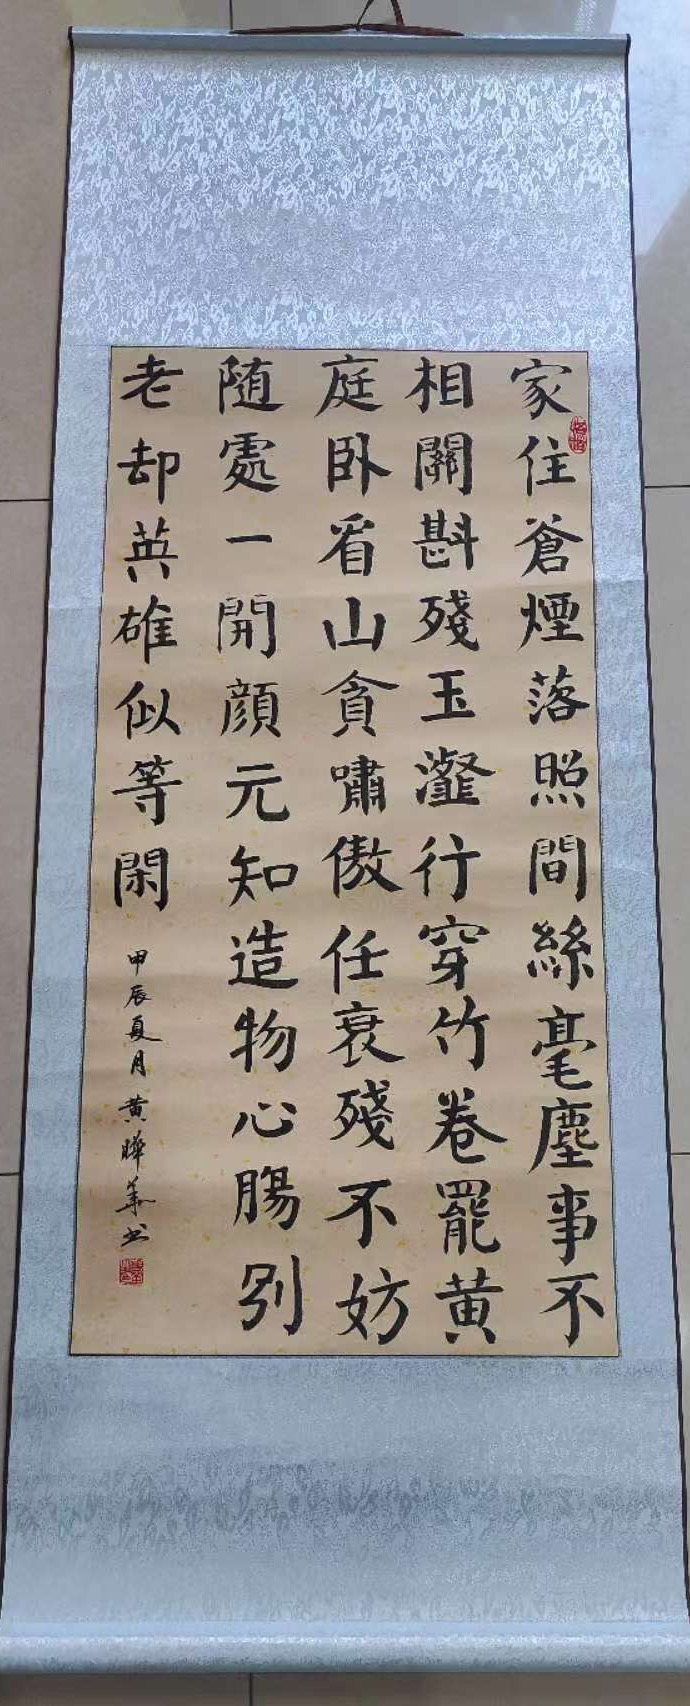 家住蒼煙落照間絲毫塵事不
相關斟殘玉瀣行穿竹卷罷黄
庭卧看山貪嘯傲任衰殘不妨
随處一開顔元知造物心腸別
老却英雄似等閑
甲辰夏月黄曄华书